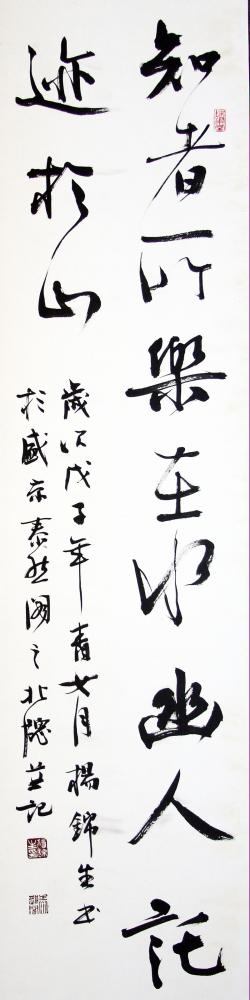 知者所樂在水幽人託
迹於山
歲次戊子年春七月楊錦生書
於盛京泰然閣之北隗並記